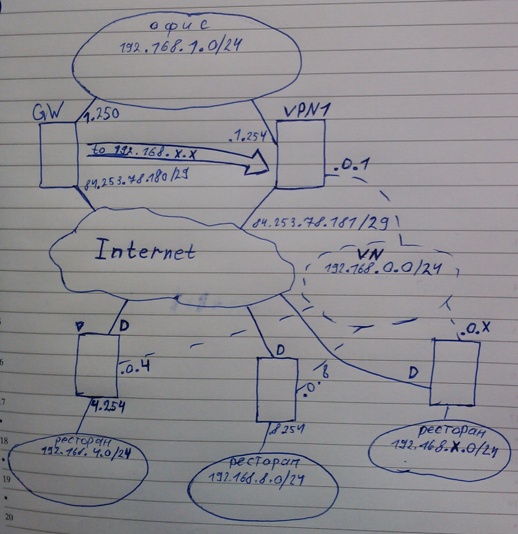 офис
192.168.1.0/24
GW
VPN1
1.250
.1.254
to 192.168.x.x
.0.1
84.253.78.180/29
84.253.78.181/29
Internet
VN
192.168.0.0/24
D
D
D
.0.4
.0.8
.0.X
4.254
8.254
ресторан
192.168.4.0/24
ресторан
192.168.8.0/24
ресторан
192.168.X.0/24
17
18
19
20